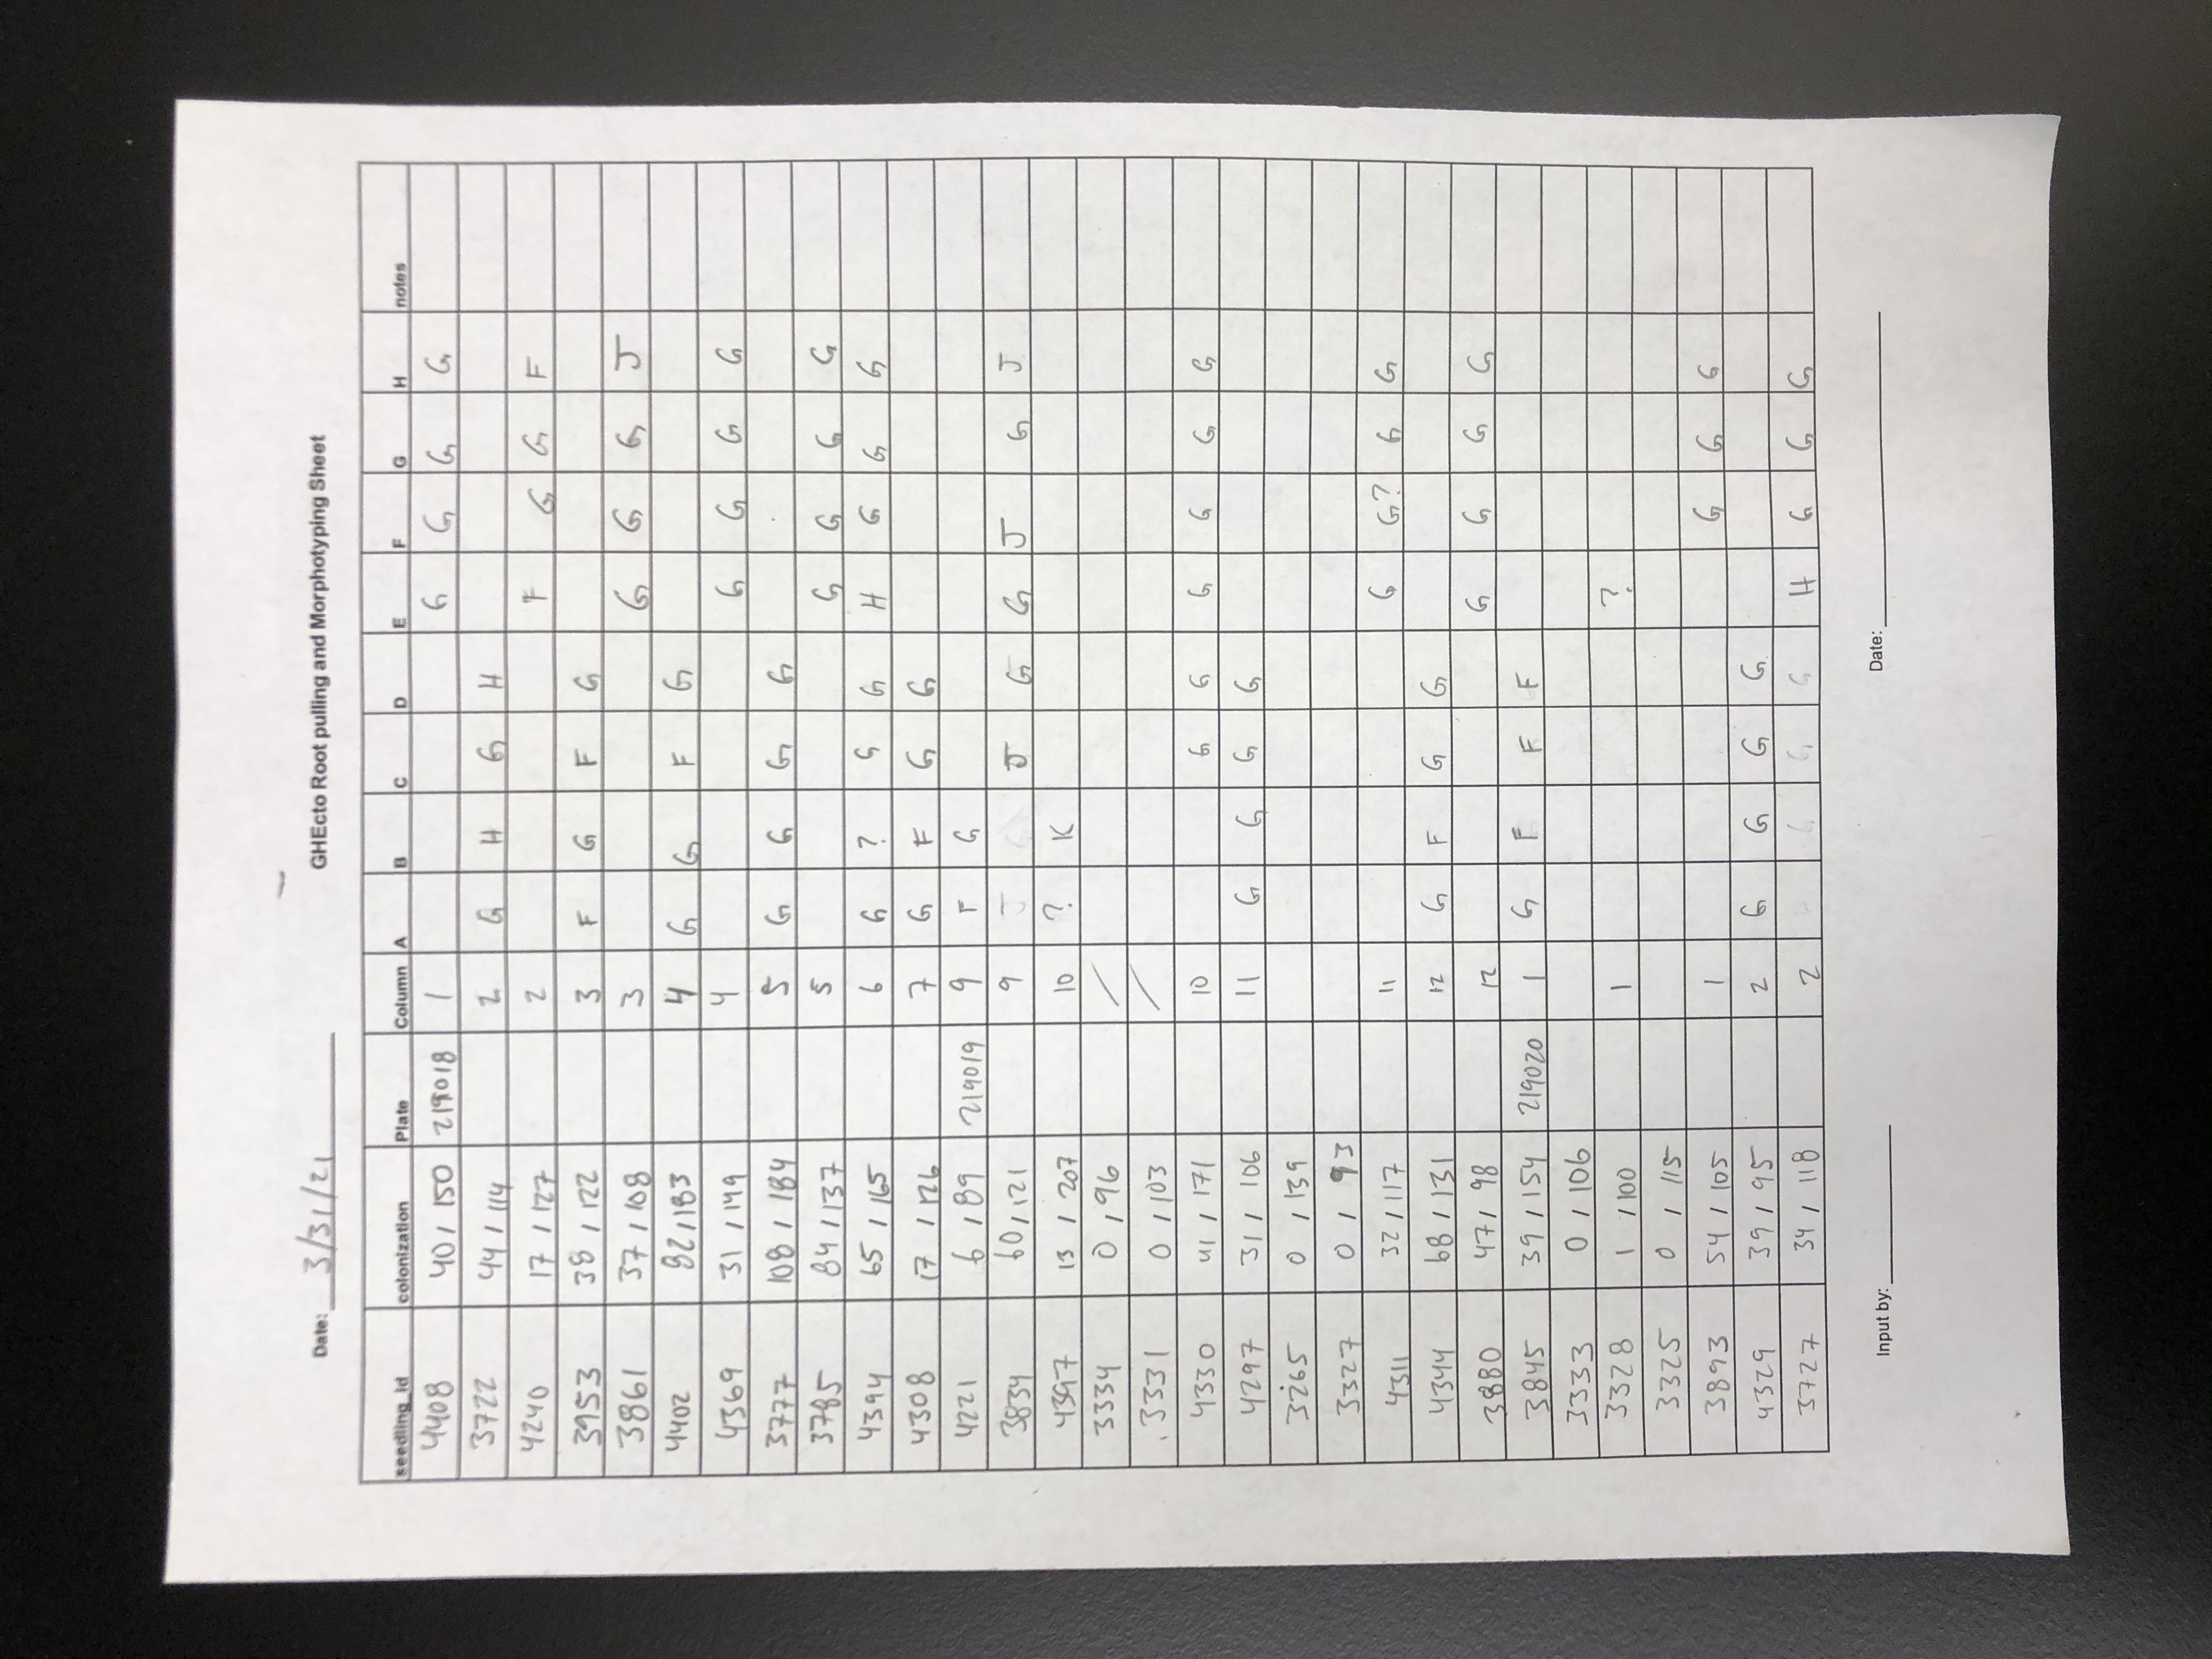 Date: 3/31/21 GHEcto Root pulling and Morphotyping Sheet
seedling_id colonization Plate Column A B C D E F G H notes
4408 40 / 150 219018 1 G G G G
3722 44 / 114 2 G H G H
4240 17 / 127 2 F G G F
3953 38 / 122 3 F G F G
3861 37 / 108 3 G G G J
4402 82 / 183 4 G G F G
4369 31 / 149 4 G G G G
3777 108 / 184 5 G G G G
3785 84 / 137 5 G G G G
4394 65 / 165 6 G ? G G H G G G
4308 17 / 126 7 G F G G
4221 6 / 89 219019 9 F G
3834 60 / 121 9 J G G J G J
4397 13 / 207 10 ? K
3334 0 / 96 /
3331 0 / 103 /
4330 41 / 171 10 G G G G G G
4297 31 / 106 11 G G G G
3265 0 / 139
3327 0 / 93
4311 32 / 117 11 G G? G G
4344 68 / 131 12 G F G G
3880 47 / 98 12 G G G G
3845 39 / 154 219020 1 G F F F
3333 0 / 106
3328 1 / 100 1 ?
3325 0 / 115
3893 54 / 105 1 G G G
4329 39 / 95 2 G G G G
3727 34 / 118 2 H G G G
Input by: Date: